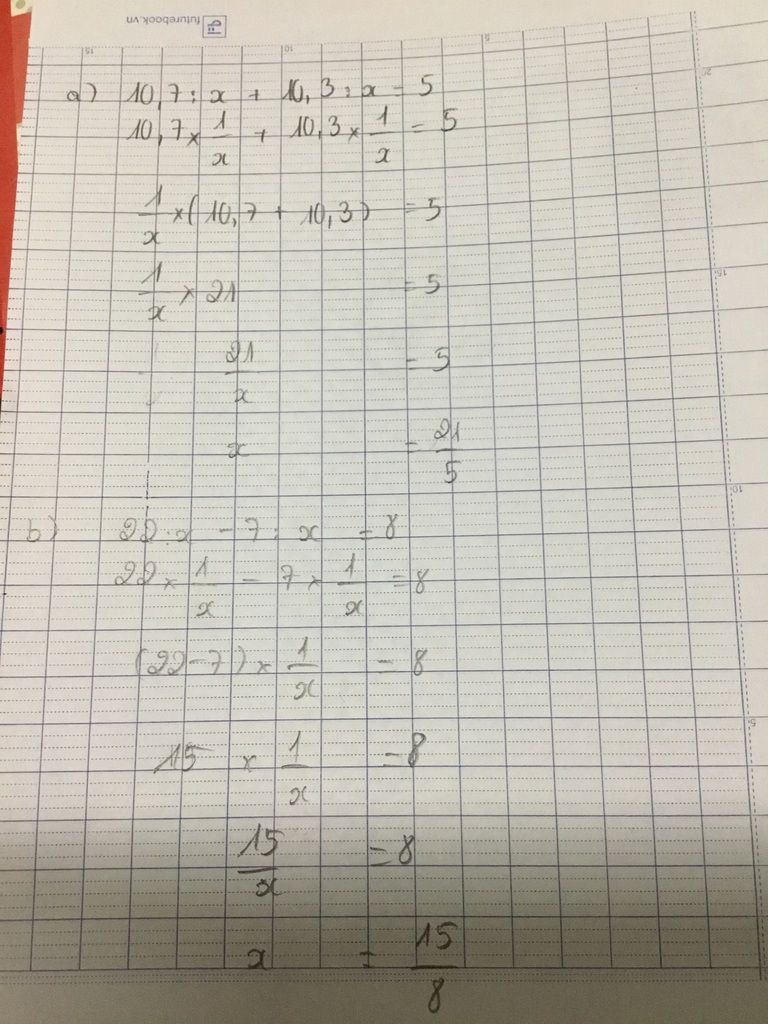 futurebook.vn
a) 10,7 : x + 10,3 : x = 5
10,7 × 1/x + 10,3 × 1/x = 5
1/x × (10,7 + 10,3) = 5
1/x × 21 = 5
21/x = 5
x = 21/5
b) 22 : x - 7 : x = 8
22 × 1/x - 7 × 1/x = 8
(22 - 7) × 1/x = 8
15 × 1/x = 8
15/x = 8
x = 15/8